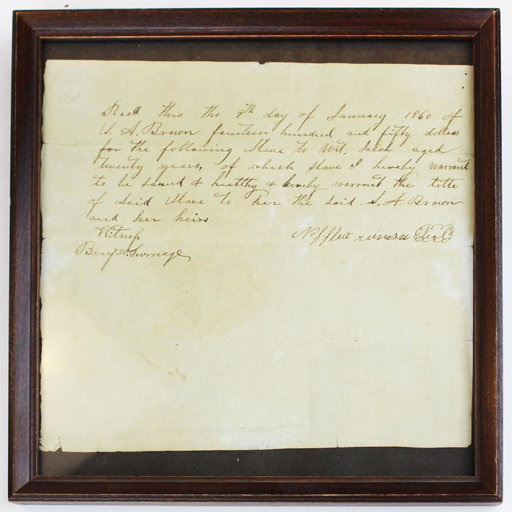 Recd this the 9th day of January 1860 of
S. A. Brown fourteen hundred and fifty dollars
for the following slave to wit. aged
twenty years, of which slave I hereby warrant
to be sound & healthy & hereby warrant the title
of said slave to her the said S. A. Brown
and her heirs.
Witness
Benj. W.